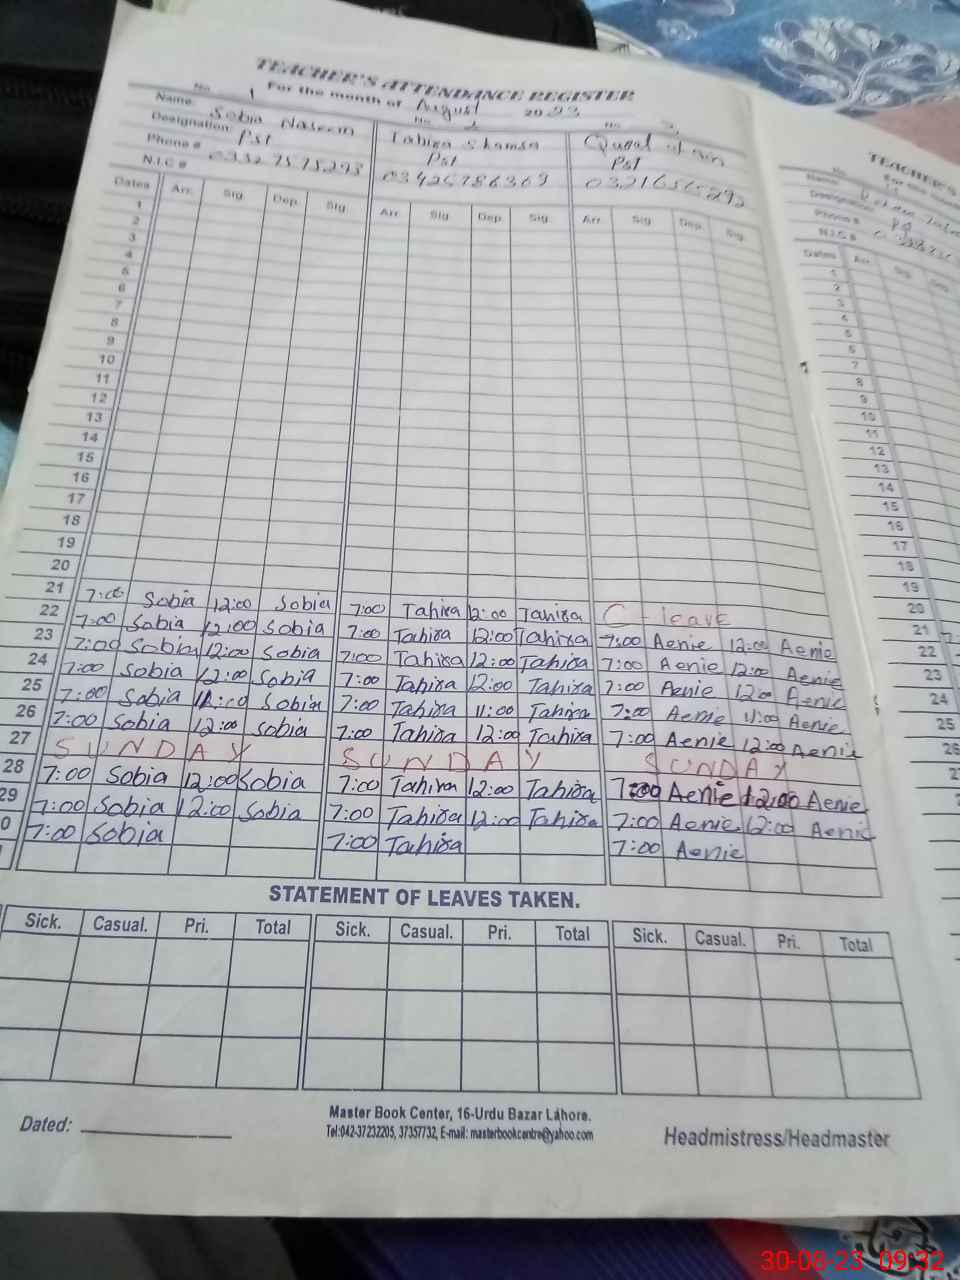 TEACHER'S ATTENDANCE REGISTER
For the month of August 2023
No. 1 No. 2 No. 3
Name: Sobia Naseem Tahira Shamsa Qurat ul ain
Designation: Pst Pst Pst
Phone # 03427786369
N.I.C #
Dates Arr. Sig. Dep. Sig. Arr. Sig. Dep. Sig. Arr. Sig. Dep. Sig.
1
2
3
4
5
6
7
8
9
10
11
12
13
14
15
16
17
18
19
20
21 7:00 Sobia 12:00 Sobia 7:00 Tahira 12:00 Tahira C - leave
22 7:00 Sobia 12:00 Sobia 7:00 Tahira 12:00 Tahira 7:00 Aenie 12:00 Aenie
23 7:00 Sobia 12:00 Sobia 7:00 Tahira 12:00 Tahira 7:00 Aenie 12:00 Aenie
24 7:00 Sobia 12:00 Sobia 7:00 Tahira 12:00 Tahira 7:00 Aenie 12:00 Aenie
25 7:00 Sobia 11:00 Sobia 7:00 Tahira 11:00 Tahira 7:00 Aenie 11:00 Aenie
26 7:00 Sobia 12:00 Sobia 7:00 Tahira 12:00 Tahira 7:00 Aenie 12:00 Aenie
27 SUNDAY SUNDAY SUNDAY
28 7:00 Sobia 12:00 Sobia 7:00 Tahira 12:00 Tahira 7:00 Aenie 12:00 Aenie
29 7:00 Sobia 12:00 Sobia 7:00 Tahira 12:00 Tahira 7:00 Aenie 12:00 Aenie
0 7:00 Sobia 7:00 Tahira 7:00 Aenie
STATEMENT OF LEAVES TAKEN.
Sick. Casual. Pri. Total Sick. Casual. Pri. Total Sick. Casual. Pri. Total
Dated:
Master Book Center, 16-Urdu Bazar Lahore.
Tel:042-37232205, 37357732, E-mail: masterbookcentre@yahoo.com
Headmistress/Headmaster
TEACHER'S
For the
No.
Name:
Designation:
Phone #
N.I.C #
Dates Arr. Sig. Dep.
1
2
3
4
5
6
7
8
9
10
11
12
13
14
15
16
17
18
19
20
21 7:
22
23
24
25
26
30-08-23 09:32